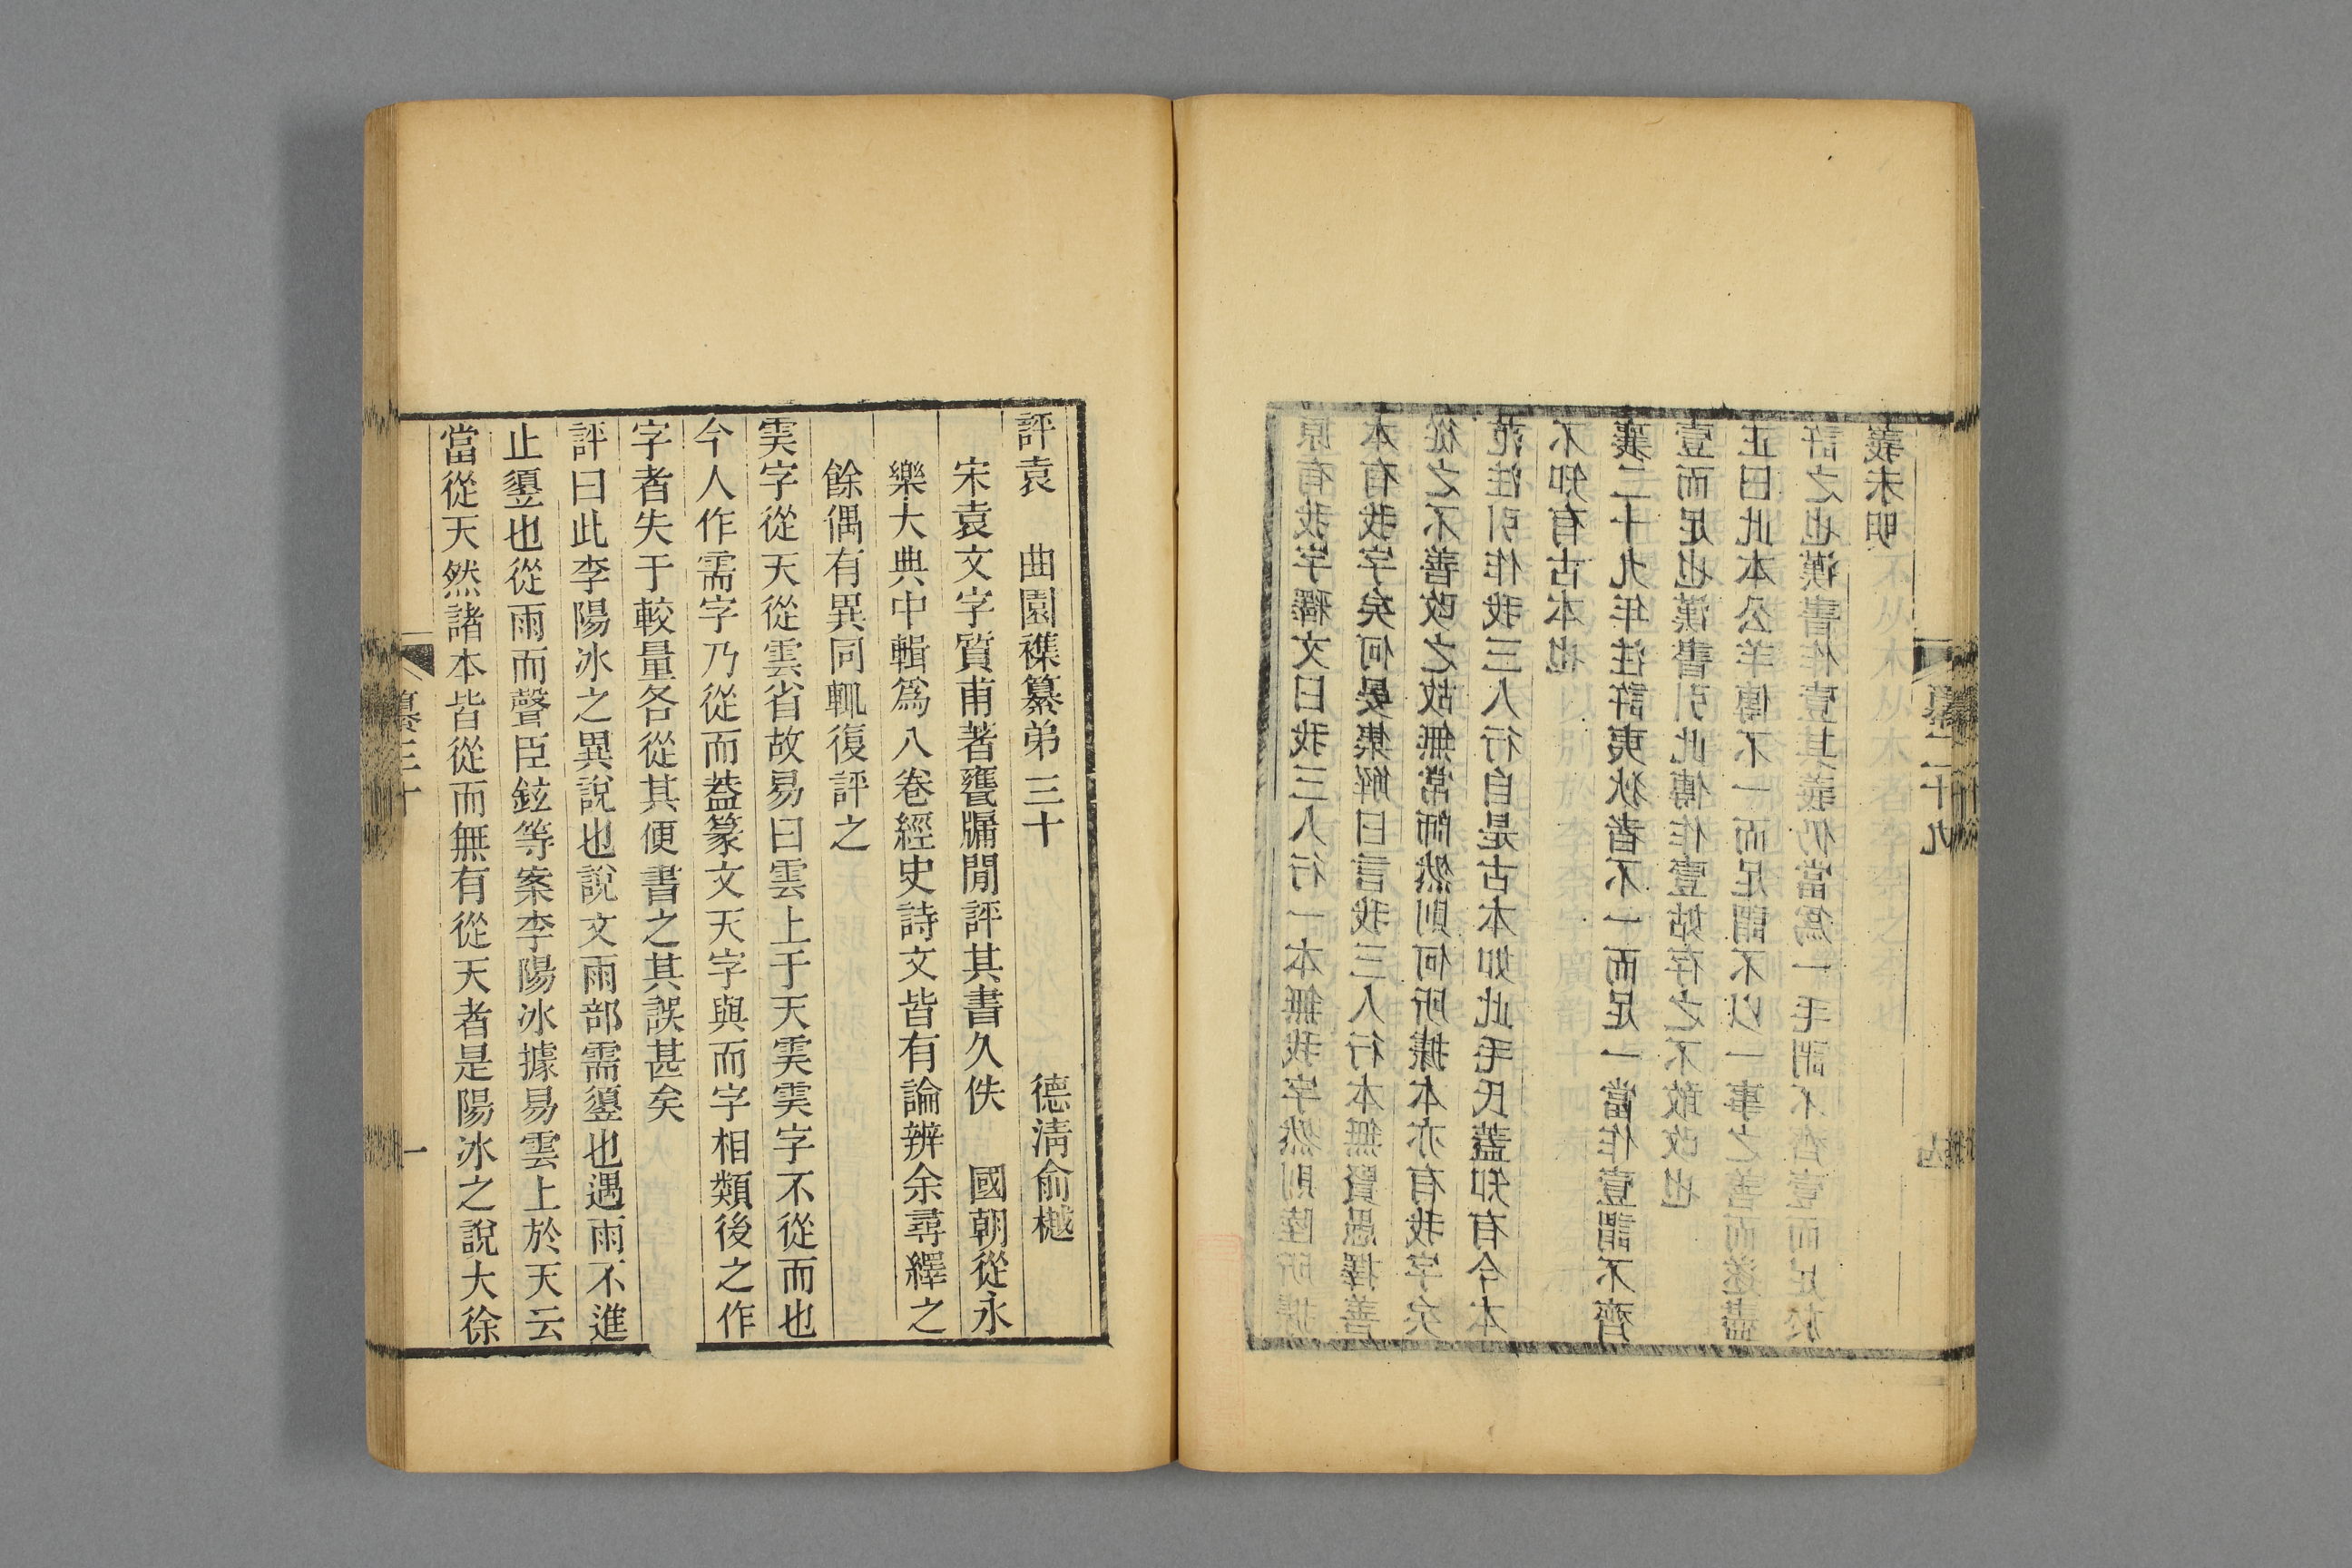 原有我字釋文曰我三人行一本無我字然則陸所據
本有我字矣何晏集解曰言我三人行本無賢愚擇善
從之不善改之故無常師然則何所據本亦有我字矣
范注引作我三人行自是古本如此毛氏蓋知有今本
不知有古本也
襄二十九年注許夷狄者不一而足一當作壹謂不齊
壹而足也漢書引此傳作壹姑存之不敢改也
正曰此本公羊傳不一而足謂不以一事之善而遂盡
許之也漢書作壹其義仍當爲一毛謂不齊壹而足於
義未明
纂二十九
評袁　曲園襍纂弟三十　德清俞樾
宋袁文字質甫著甕牖閒評其書久佚　國朝從永
樂大典中輯爲八卷經史詩文皆有論辨余尋繹之
餘偶有異同輒復評之
䨙字從天從雲省故易曰雲上于天䨙䨙字不從而也
今人作需字乃從而葢篆文天字與而字相類後之作
字者失于較量各從其便書之其誤甚矣
評曰此李陽冰之異說也說文雨部需䇓也遇雨不進
止䇓也從雨而聲臣鉉等案李陽冰據易雲上於天云
當從天然諸本皆從而無有從天者是陽冰之說大徐
纂三十
一